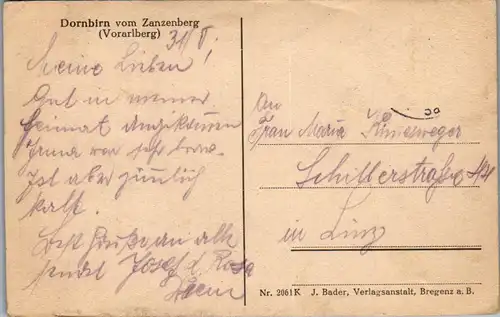 Dornbirn vom Zanzenberg
(Vorarlberg)
31/V.
Meine Lieben!
Gut in meiner
Heimat angekommen
Irma war sehr brav.
Ist aber ziemlich
kalt.
Herzl. Grüße an alle
sendet Josef u. Rosa
An
Frau Maria
Schillerstraße
in Linz
Nr. 2061K J. Bader, Verlagsanstalt, Bregenz a. B.